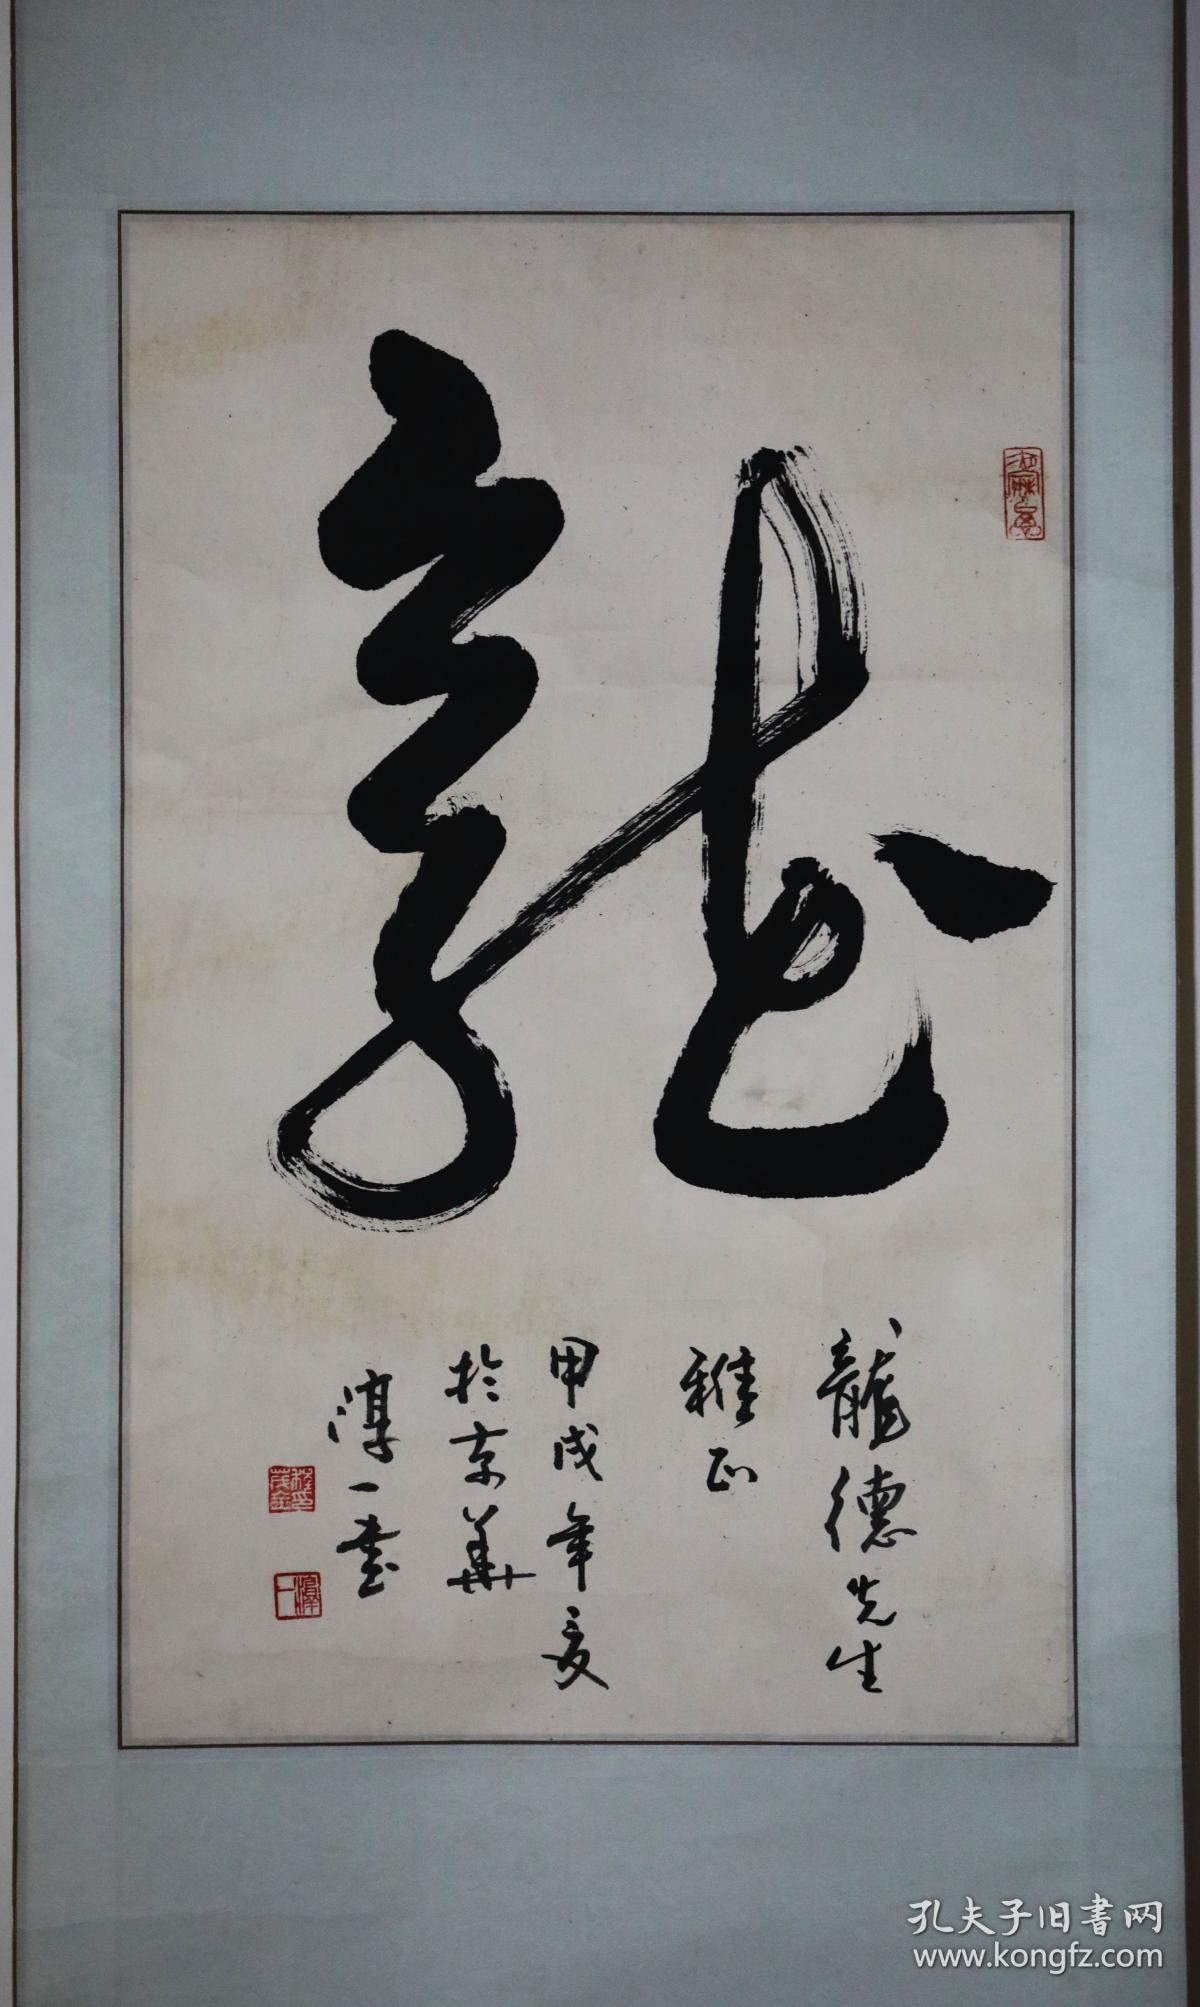 龍
龍德先生
雅正
甲戌年夏
於京華
淳一書
淳一
孔夫子旧書网
www.kongfz.com